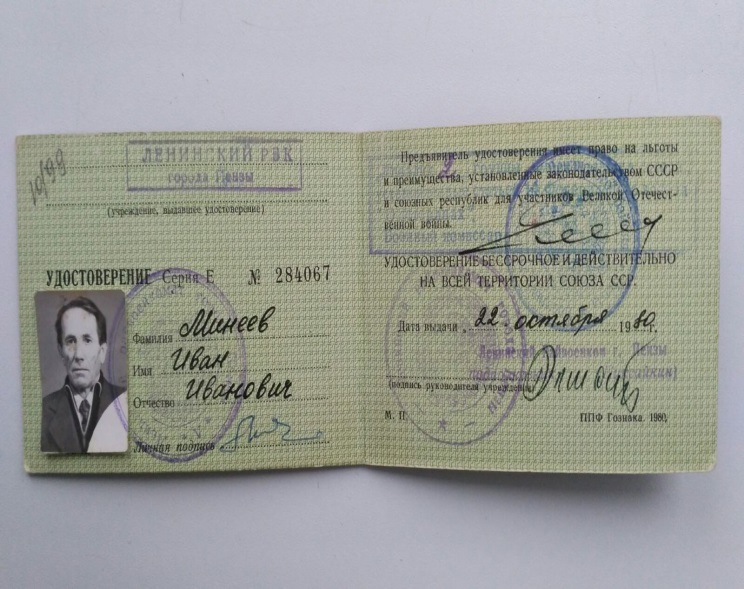 10/99
ЛЕНИНСКИЙ РВК
города Пензы
(учреждение, выдавшее удостоверение)
УДОСТОВЕРЕНИЕ Серия Е № 284067
Фамилия Минеев
Имя Иван
Отчество Иванович
Личная подпись
Предъявитель удостоверения имеет право на льготы
и преимущества, установленные законодательством СССР
и союзных республик для участников Великой Отечест-
венной войны.
Военный комиссар
УДОСТОВЕРЕНИЕ БЕССРОЧНОЕ И ДЕЙСТВИТЕЛЬНО
НА ВСЕЙ ТЕРРИТОРИИ СОЮЗА ССР.
Дата выдачи 22. октября 1980г.
г. Пензы
(подпись руководителя учреждения)
М. П. ППФ Гознака. 1980.